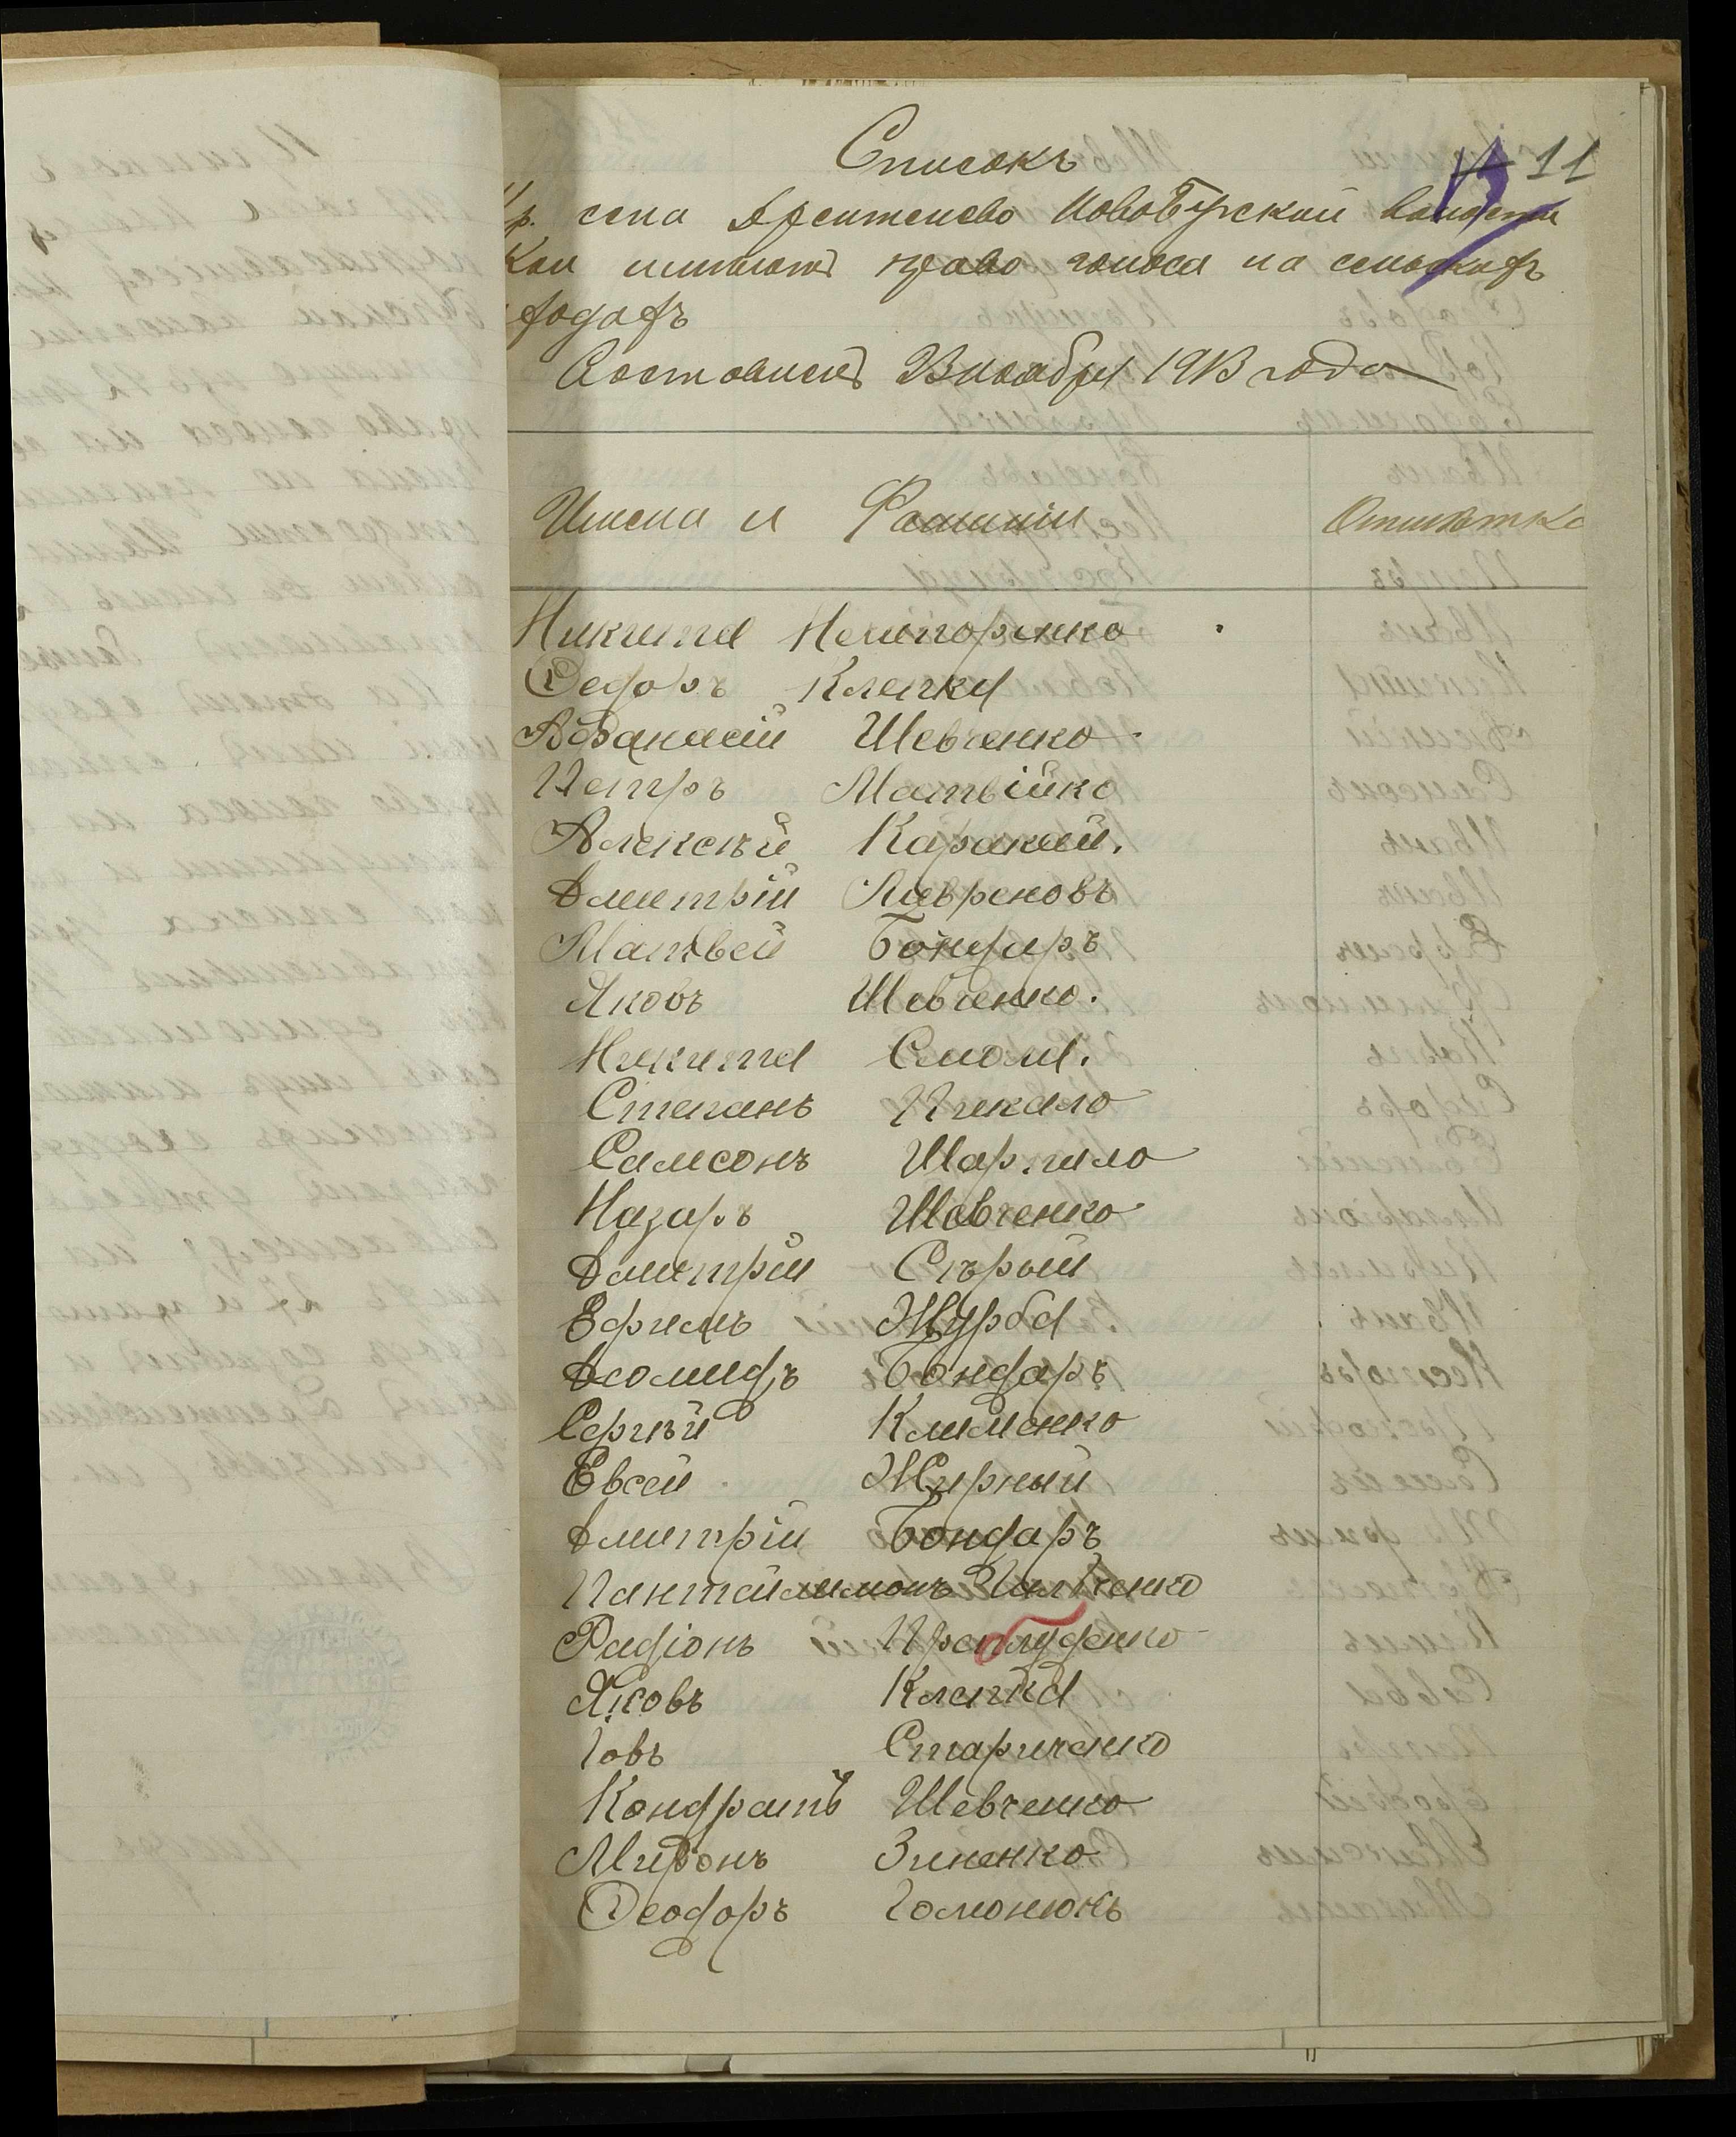 Списокъ
11
кр. села Арсентьево НовоБугской Волости
Кои имѣютъ право голоса на сельскихъ
сходахъ
Составленъ 23 ноября 1913 года
Имена и Фамиліи Отмѣтка
Никита Нечипоренко
Федоръ Клепка
Афанасій Шевченко
Петръ Матвійко
Алексѣй Каракай.
Дмитрій Лавреновъ
Матвей Бондаръ
Яковъ Шевченко.
Никита Смола.
Степанъ Пикало
Самсонъ Шаргило
Назаръ Шевченко
Дмитрій Сѣрый
Ефимъ Журба
Деомидъ Бондаръ
Сергѣй Клименко
Евсей Жирный
Дмитрій Бондаръ
Пантайлимонъ
Радіонъ Преблуденко
Яковъ Клепка
Іовъ Стариченко
Кондратъ Шевченко
Миронъ Зиненко
Феодоръ Гомонюкъ